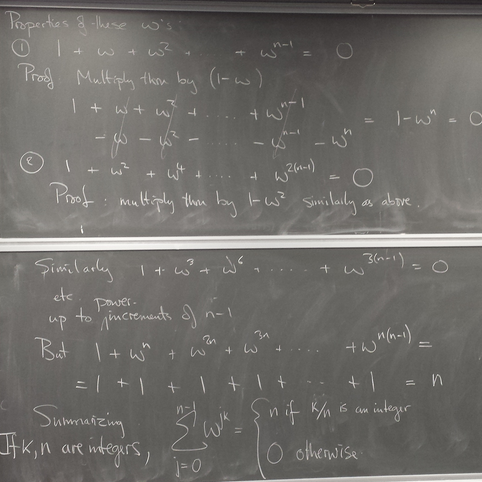 Properties of these ω's:
① 1 + ω + ω² + ω^{n-1} = 0
Proof: Multiply thru by (1-ω)
1 + ω + ω² + .... + ω^{n-1}
- ω - ω² - .... - ω^{n-1} - ω^n = 1-ω^n = 0
② 1 + ω² + ω⁴ + .... + ω^{2(n-1)} = 0
Proof: multiply thru by 1-ω² similarly as above.
Similarly 1 + ω³ + ω⁶ + ..... + ω^{3(n-1)} = 0
etc power-
up to increments of n-1
But 1 + ω^n + ω^{2n} + ω^{3n} + ..... + ω^{n(n-1)} =
= 1 + 1 + 1 + 1 + ... + 1 = n
Summarizing
If k,n are integers, \sum_{j=0}^{n-1} ω^{jk} = { n if k/n is an integer
0 otherwise